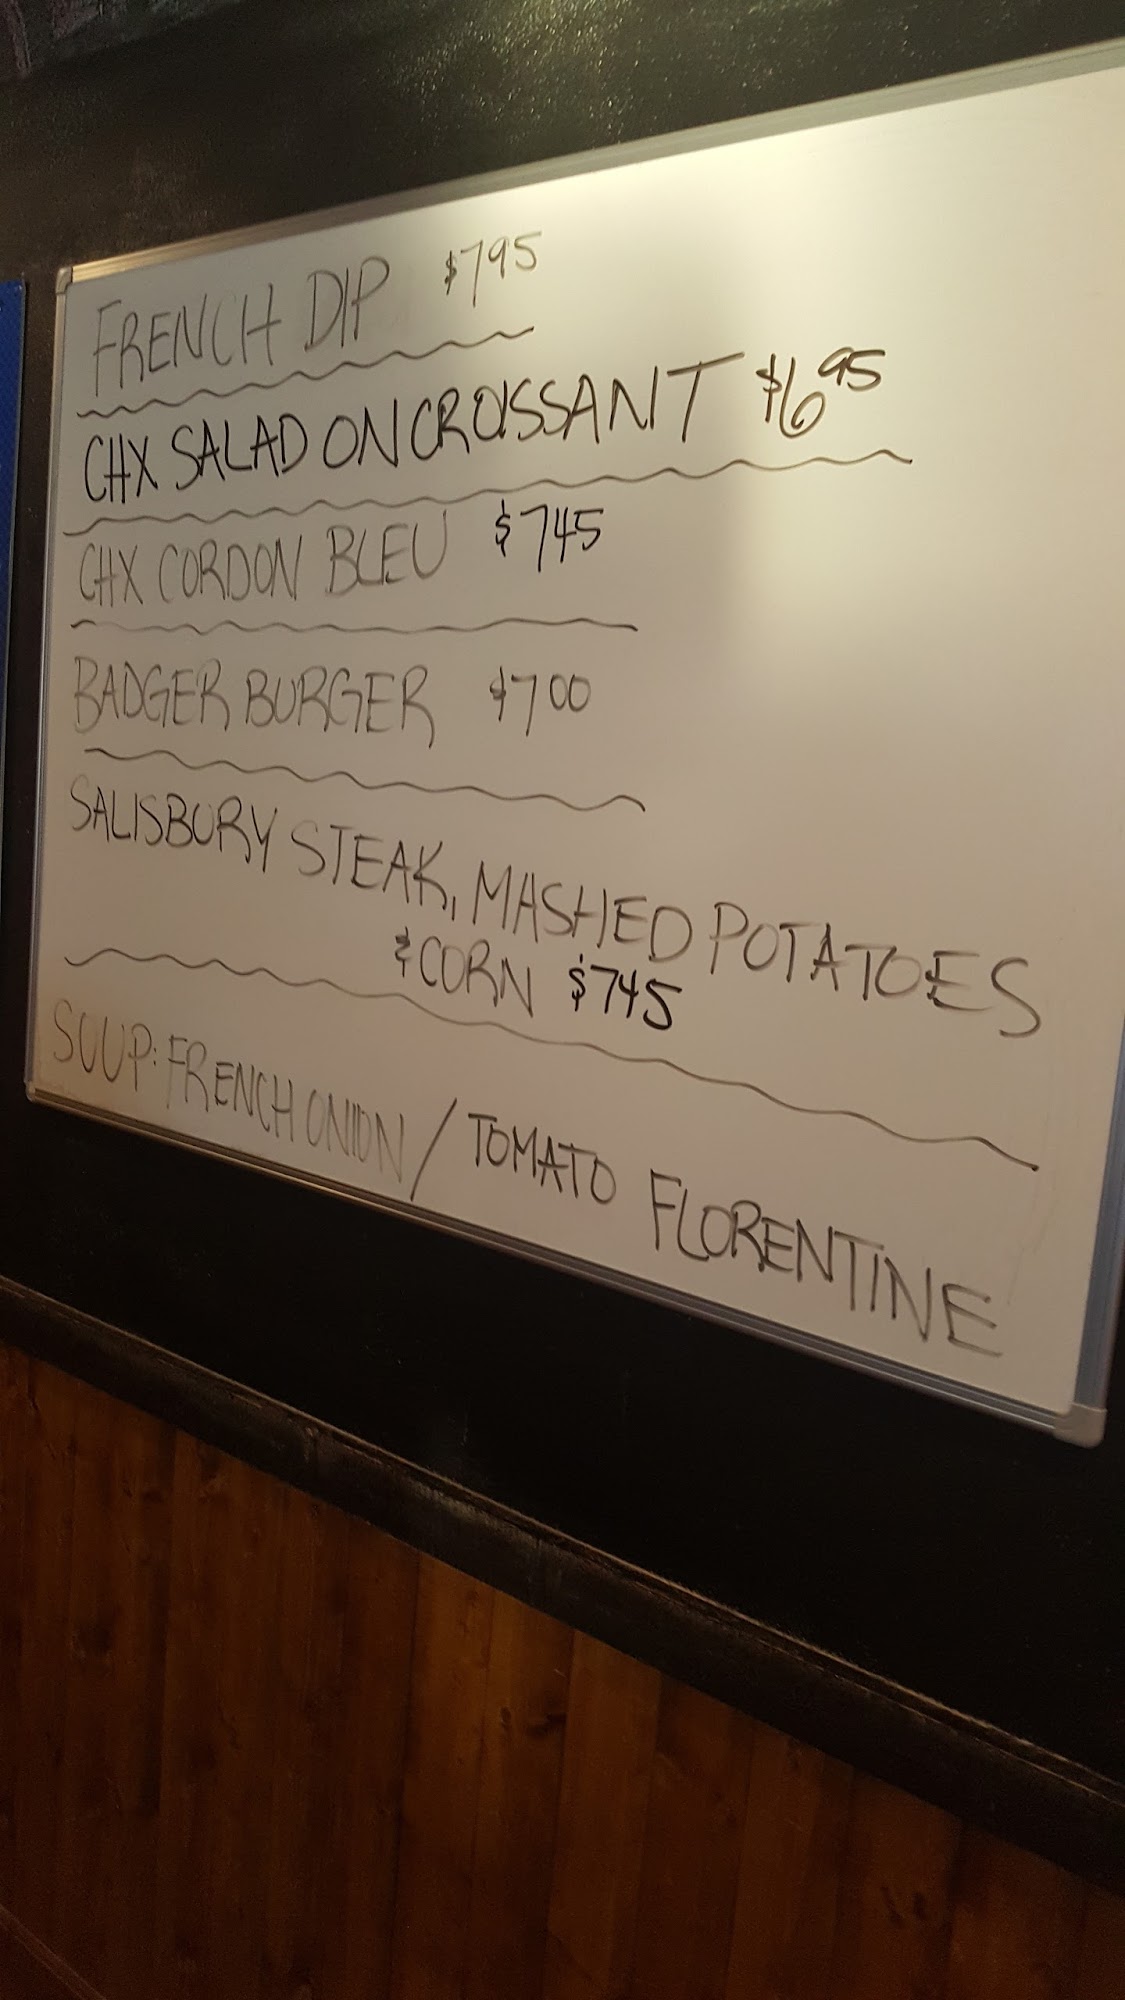 FRENCH DIP $795
CHX SALAD ON CROISSANT $695
CHX CORDON BLEU $745
BADGER BURGER $700
SALISBURY STEAK, MASHED POTATOES
& CORN $745
SOUP: FRENCH ONION / TOMATO FLORENTINE